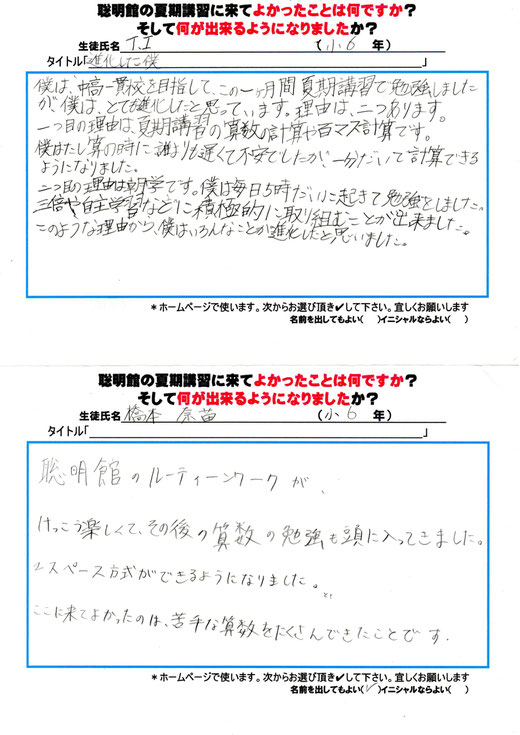 聡明館の夏期講習に来てよかったことは何ですか?
そして何が出来るようになりましたか?
生徒氏名 T.I （小 6 年）
タイトル「進化した僕」
僕は、中高一貫校を目指して、この一ヶ月間夏期講習で勉強しました
が、僕は、とても進化したと思っています。理由は、二つあります。
一つ目の理由は、夏期講習の算数の計算や百マス計算です。
僕はたし算の時に誰よりも遅くて不安でしたが、一分だいで計算できる
ようになりました。
二つ目の理由は朝学です。僕は毎日5時だいに起きて勉強をしました。
三倍や自主学習などに積極的に取り組むことが出来ました。
このような理由から、僕はいろんなことが進化したと思いました。
*ホームページで使います。次からお選び頂き✔して下さい。宜しくお願いします
名前を出してもよい( )イニシャルならよい( )
聡明館の夏期講習に来てよかったことは何ですか?
そして何が出来るようになりましたか?
生徒氏名 橋本 奈苗 （小 6 年）
タイトル「」
聡明館のルーティーンワークが、
けっこう楽しくて、その後の算数の勉強も頭に入ってきました。
2スペース方式ができるようになりました。
ここに来てよかったのは、苦手な算数をたくさんできたことです.
*ホームページで使います。次からお選び頂き✔して下さい。宜しくお願いします
名前を出してもよい(✓)イニシャルならよい( )